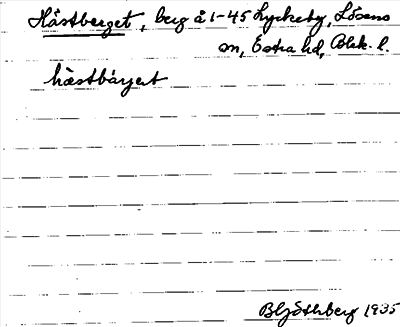 Hästberget, berg å 1-45 Lyckeby, Lösens
sn, Östra hd, Blek. l.
hästbärjert
B Ljöthberg 1935